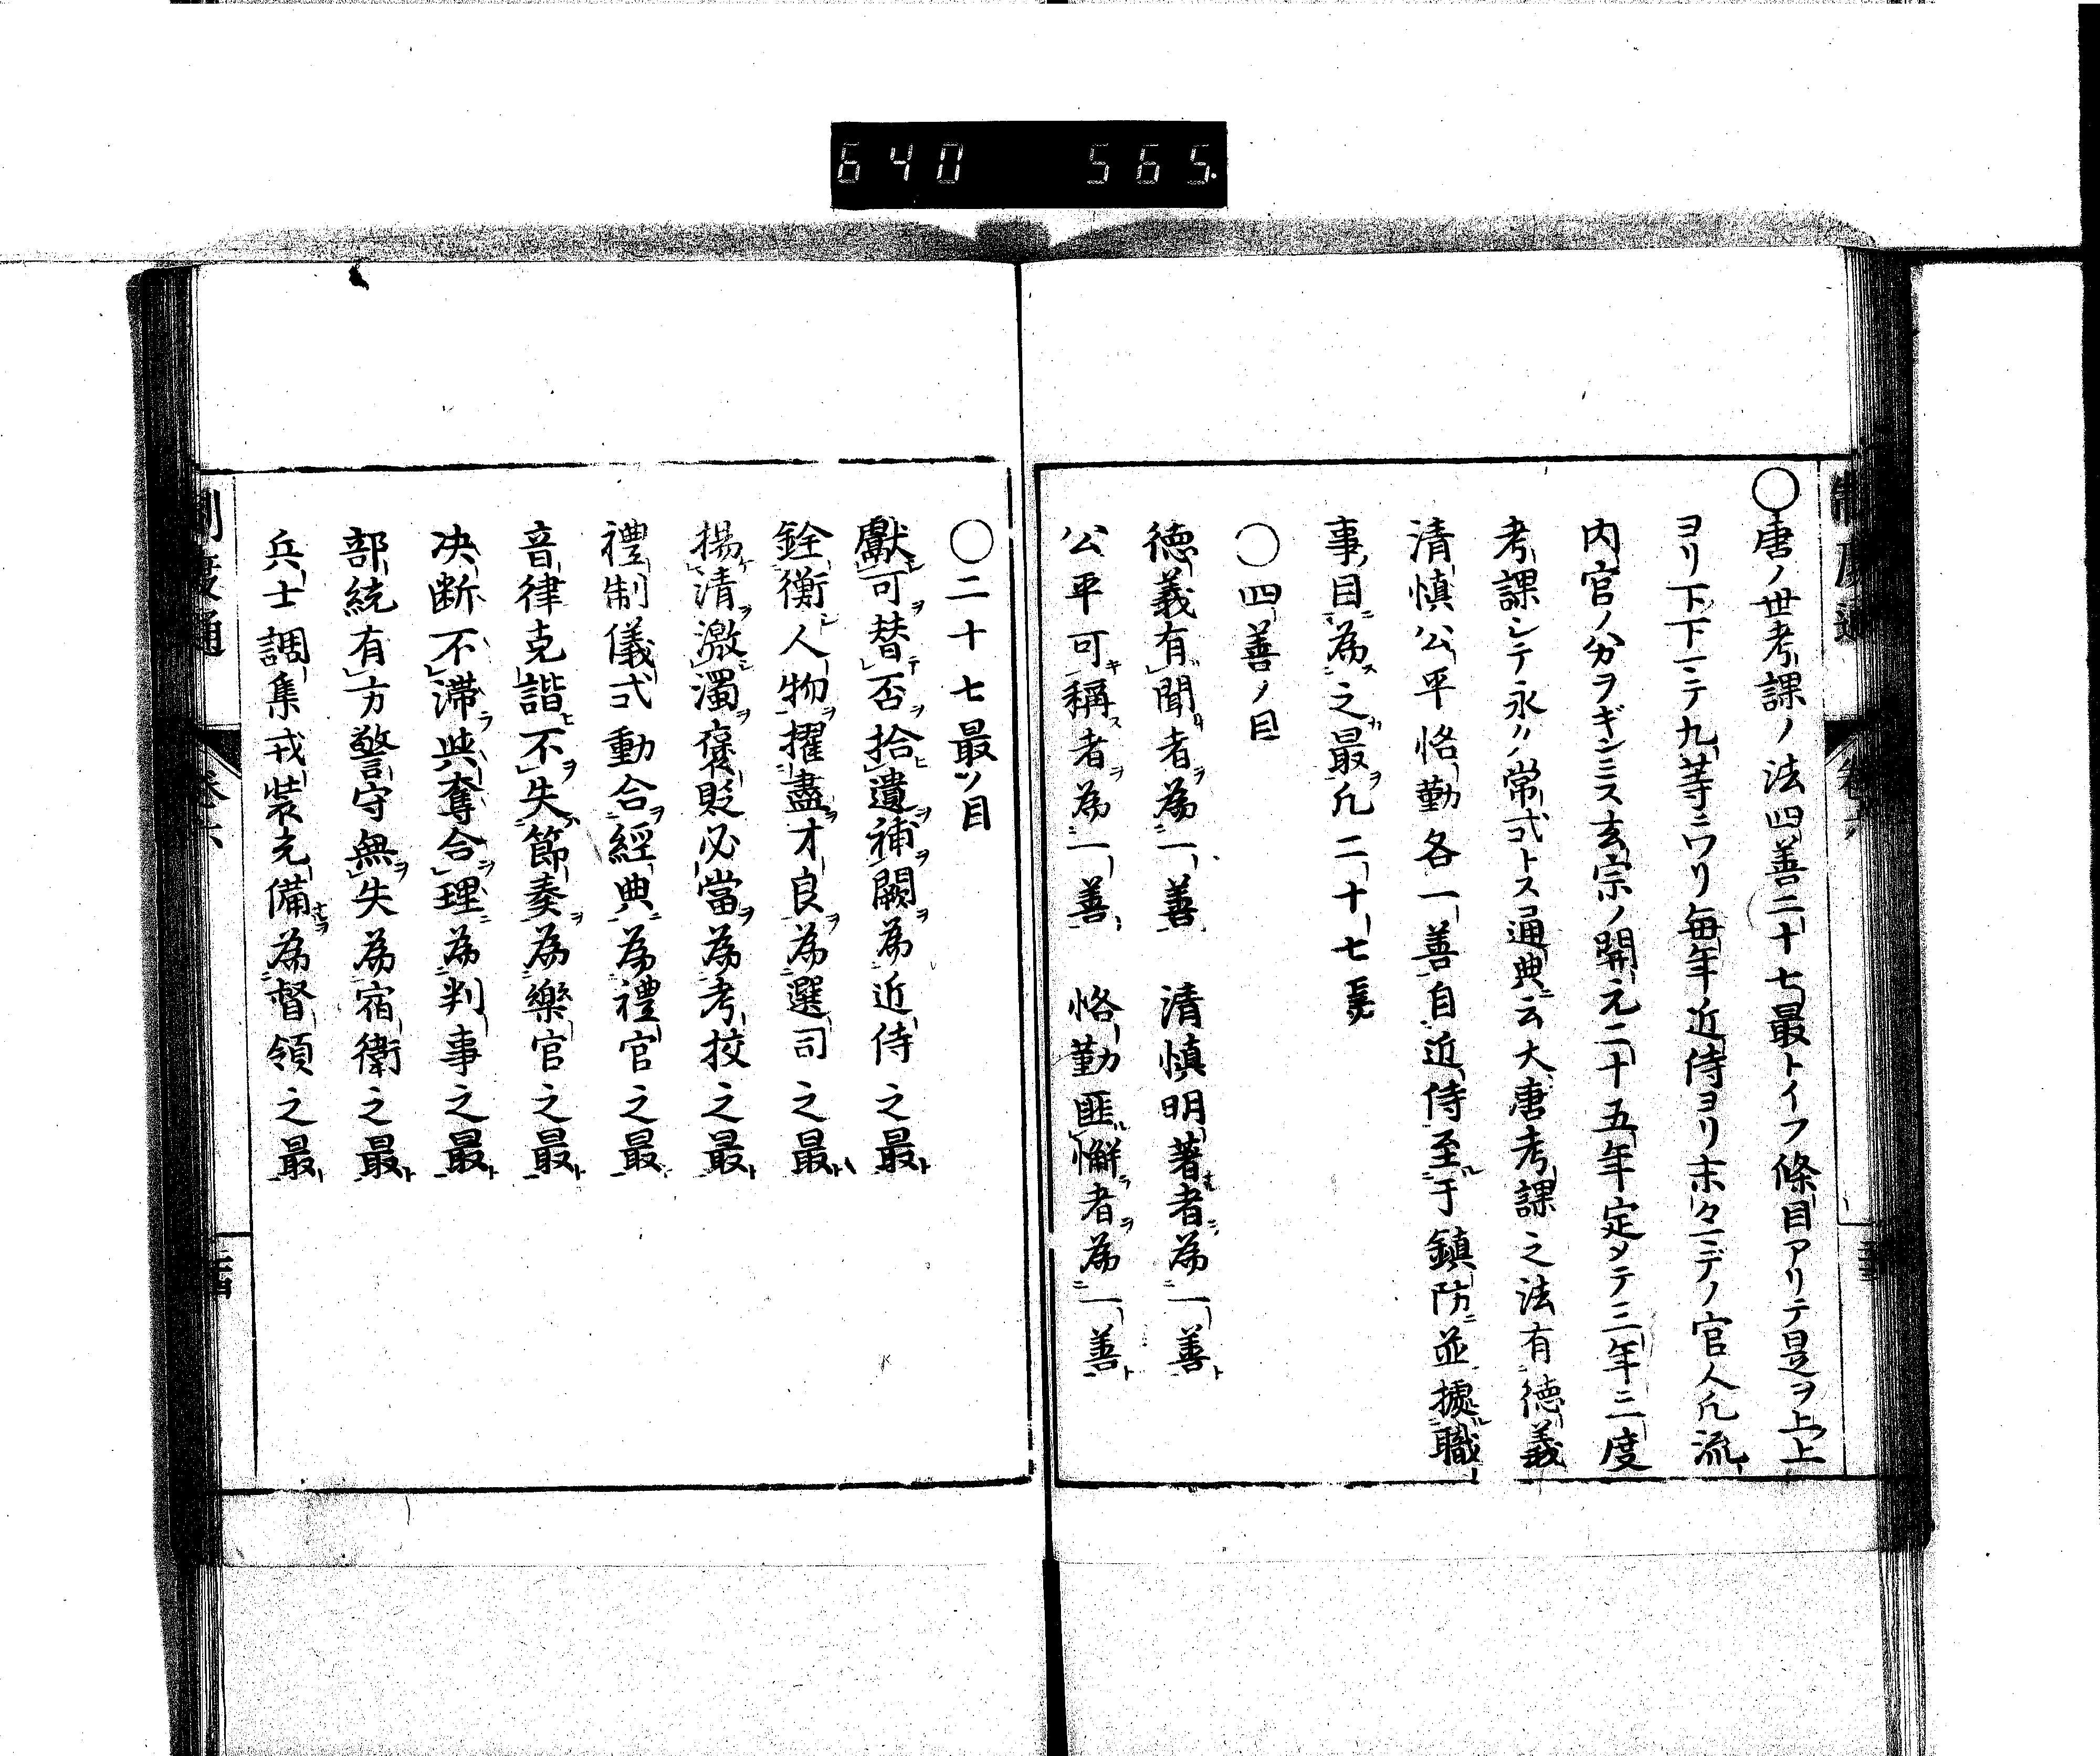 640 565
〇唐ノ世考課ノ法四善二十七最トイフ條目アリテ是ヲ上上
ヨリ下下ニテ九等ニワリ毎年近侍ヨリ末々ニデノ官人凡流
内官ノ分ヲギンミス玄宗ノ開元二十五年定メテ三年ニ一度
考課シテ永ク常式トス通典云大唐考課之法有德義
清慎公平恪勤各一善自近侍至于鎮防並據職
事目為之最凡二十七
〇四善ノ目
德義有聞者為一善 清慎明著者為一善
公平可稱者為一善 恪勤匪懈者為一善
〇二十七最ノ目
獻可替否拾遺補闕為近侍之最
銓衡人物擢盡才良為選司之最
揚清激濁褒貶必當為考挍之最
禮制儀式動合經典為禮官之最
音律克諧不失節奏為樂官之最
决断不滞與奪合理為判事之最
部統有方警守無失為宿衛之最
兵士調集戎裝充備為督領之最
制度通
卷六